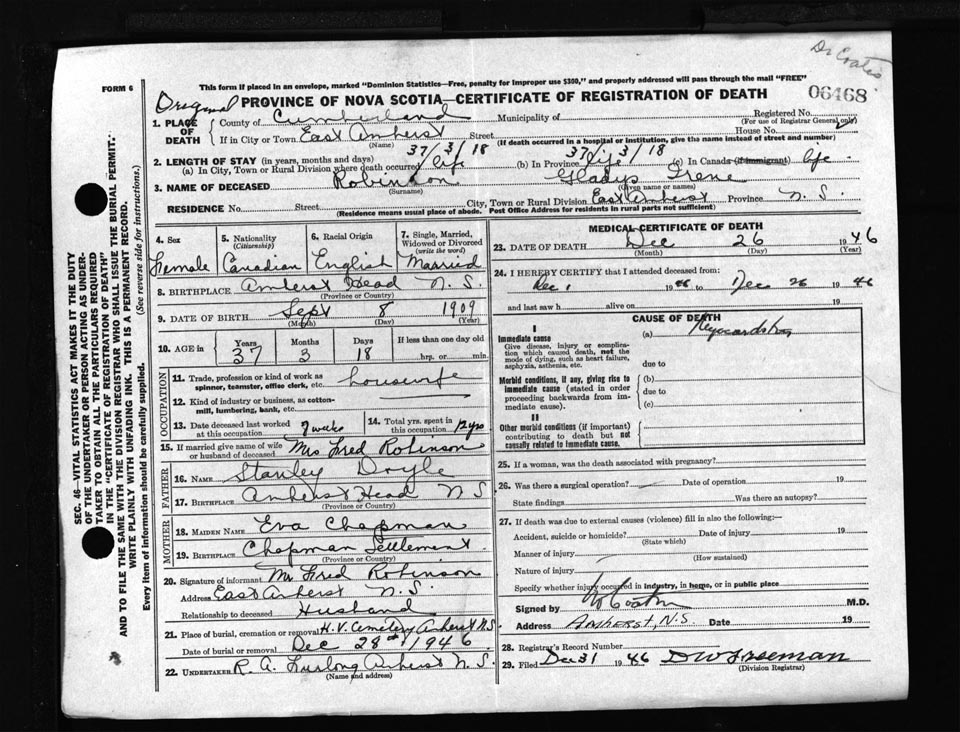 Dr Coates
FORM 6
This form if placed in an envelope, marked "Dominion Statistics—Free, penalty for improper use $300," and properly addressed will pass through the mail "FREE"
Original
PROVINCE OF NOVA SCOTIA—CERTIFICATE OF REGISTRATION OF DEATH
06468
1. PLACE OF DEATH
County of Cumberland Municipality of Registered No.
(For use of Registrar General only)
If in City or Town East Amherst Street House No.
(Name) (If death occurred in a hospital or institution, give the name instead of street and number)
37/3/18 37/3/18
2. LENGTH OF STAY (in years, months and days)
(a) In City, Town or Rural Division where death occurred life (b) In Province life (c) In Canada (if immigrant) life
3. NAME OF DECEASED Robinson Gladys Irene
(Surname) (Given name or names)
RESIDENCE No. Street City, Town or Rural Division East Amherst Province N.S.
(Residence means usual place of abode. Post Office Address for residents in rural parts not sufficient)
4. Sex Female
5. Nationality (Citizenship) Canadian
6. Racial Origin English
7. Single, Married, Widowed or Divorced (write the word) Married
8. BIRTHPLACE Amherst Head N.S.
(Province or Country)
9. DATE OF BIRTH Sept 8 1909
(Month) (Day) (Year)
10. AGE in Years Months Days If less than one day old
37 3 18 hrs. or min.
OCCUPATION
11. Trade, profession or kind of work as spinner, teamster, office clerk, etc. housewife
12. Kind of industry or business, as cotton-mill, lumbering, bank, etc.
13. Date deceased last worked at this occupation 7 weeks
14. Total yrs. spent in this occupation 12 yrs
15. If married give name of wife or husband of deceased Mrs Fred Robinson
FATHER
16. NAME Stanley Doyle
17. BIRTHPLACE Amherst Head N S
(Province or Country)
MOTHER
18. MAIDEN NAME Eva Chapman
19. BIRTHPLACE Chapman Settlement
(Province or Country)
20. Signature of informant Mr Fred Robinson
Address East Amherst N.S.
Relationship to deceased Husband
21. Place of burial, cremation or removal H.V. Cemetery Amherst N.S
Date of burial or removal Dec 28th 1946
22. UNDERTAKER R. A. Furlong Amherst N.S.
(Name and address)
MEDICAL CERTIFICATE OF DEATH
23. DATE OF DEATH Dec 26 1946
(Month) (Day) (Year)
24. I HEREBY CERTIFY that I attended deceased from:
Dec 1 1946 to Dec 26 1946
and last saw h alive on 19
CAUSE OF DEATH
I
Immediate cause (a)
Give disease, injury or complication which caused death, not the mode of dying, such as heart failure, asphyxia, asthenia, etc.
due to
Morbid conditions, if any, giving rise to immediate cause (stated in order proceeding backwards from immediate cause).
(b)
due to
(c)
II
Other morbid conditions (if important) contributing to death but not causally related to immediate cause.
25. If a woman, was the death associated with pregnancy?
26. Was there a surgical operation? Date of operation 19
State findings Was there an autopsy?
27. If death was due to external causes (violence) fill in also the following:—
Accident, suicide or homicide? Date of injury 19
(State which)
Manner of injury
(How sustained)
Nature of injury
Specify whether injury occurred in industry, in home, or in public place
Signed by M.D.
Address AMHERST, N.S. Date 19
28. Registrar's Record Number
29. Filed Dec 31 1946 D W Freeman
(Division Registrar)
SEC. 46—VITAL STATISTICS ACT MAKES IT THE DUTY
OF THE UNDERTAKER OR PERSON ACTING AS UNDER-
TAKER TO OBTAIN ALL THE PARTICULARS REQUIRED
IN THE "CERTIFICATE OF REGISTRATION OF DEATH"
AND TO FILE THE SAME WITH THE DIVISION REGISTRAR WHO SHALL ISSUE THE BURIAL PERMIT.
WRITE PLAINLY WITH UNFADING INK. THIS IS A PERMANENT RECORD.
Every item of information should be carefully supplied. (See reverse side for instructions.)